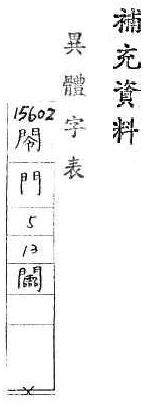 補充資料
異體字表
15602
閝
門
5
13